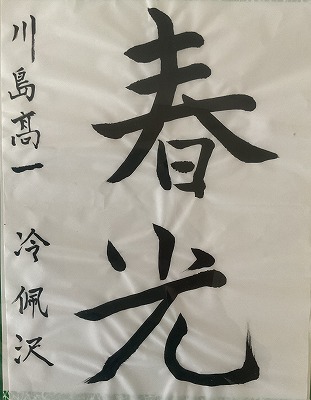 春光
川島髙一 冷佩沢